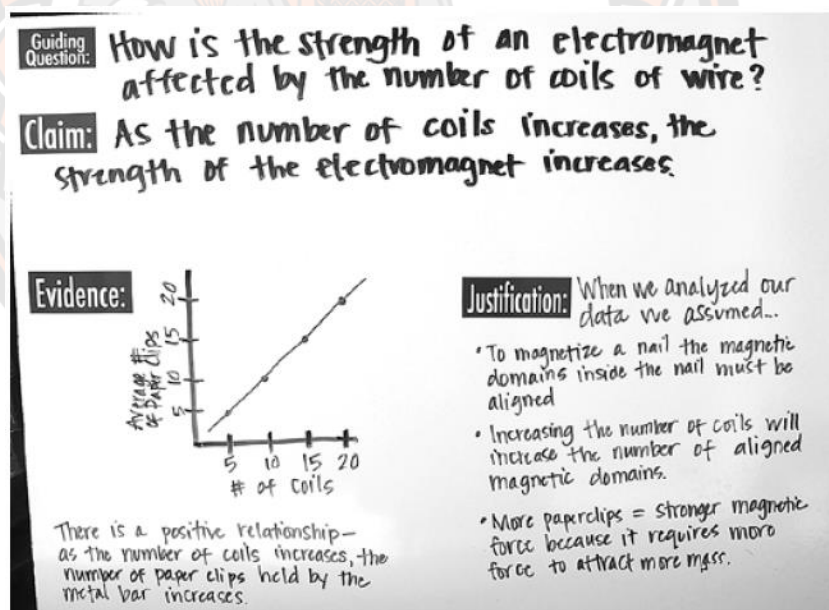 Guiding Question: How is the strength of an electromagnet
affected by the number of coils of wire?
Claim: As the number of coils increases, the
strength of the electromagnet increases.
Evidence:
Average #
of Paper Clips
20
15
10
5
5 10 15 20
# of coils
There is a positive relationship-
as the number of coils increases, the
number of paper clips held by the
metal bar increases.
Justification: When we analyzed our
data we assumed...
• To magnetize a nail the magnetic
domains inside the nail must be
aligned
• Increasing the number of coils will
increase the number of aligned
magnetic domains.
• More paperclips = stronger magnetic
force because it requires more
force to attract more mass.